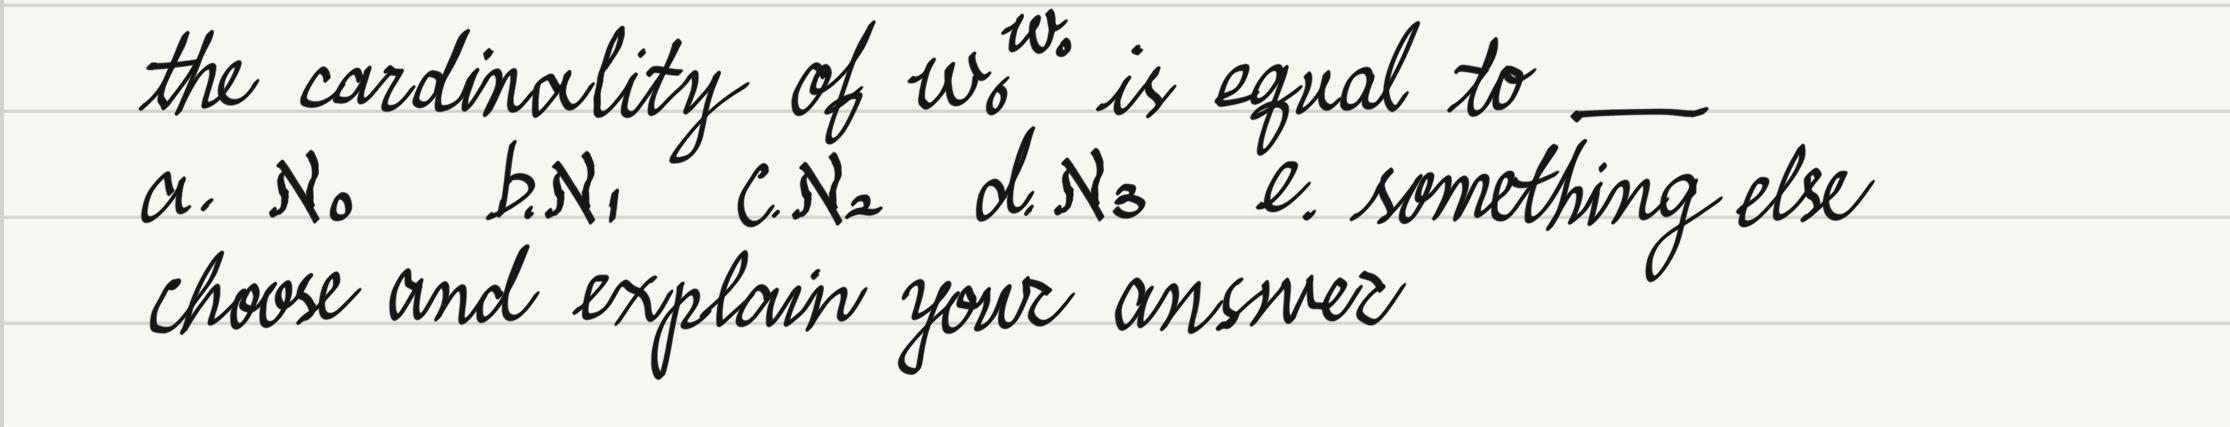 the cardinality of w₀^w₀ is equal to ___
a. ℵ₀ b. ℵ₁ c. ℵ₂ d. ℵ₃ e. something else
choose and explain your answer